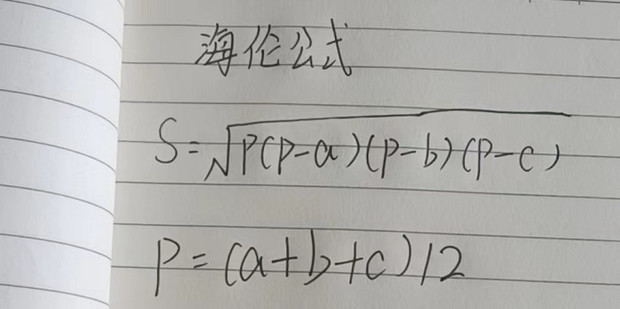 海伦公式
S=√P(P-a)(P-b)(P-c)
P=(a+b+c)/2